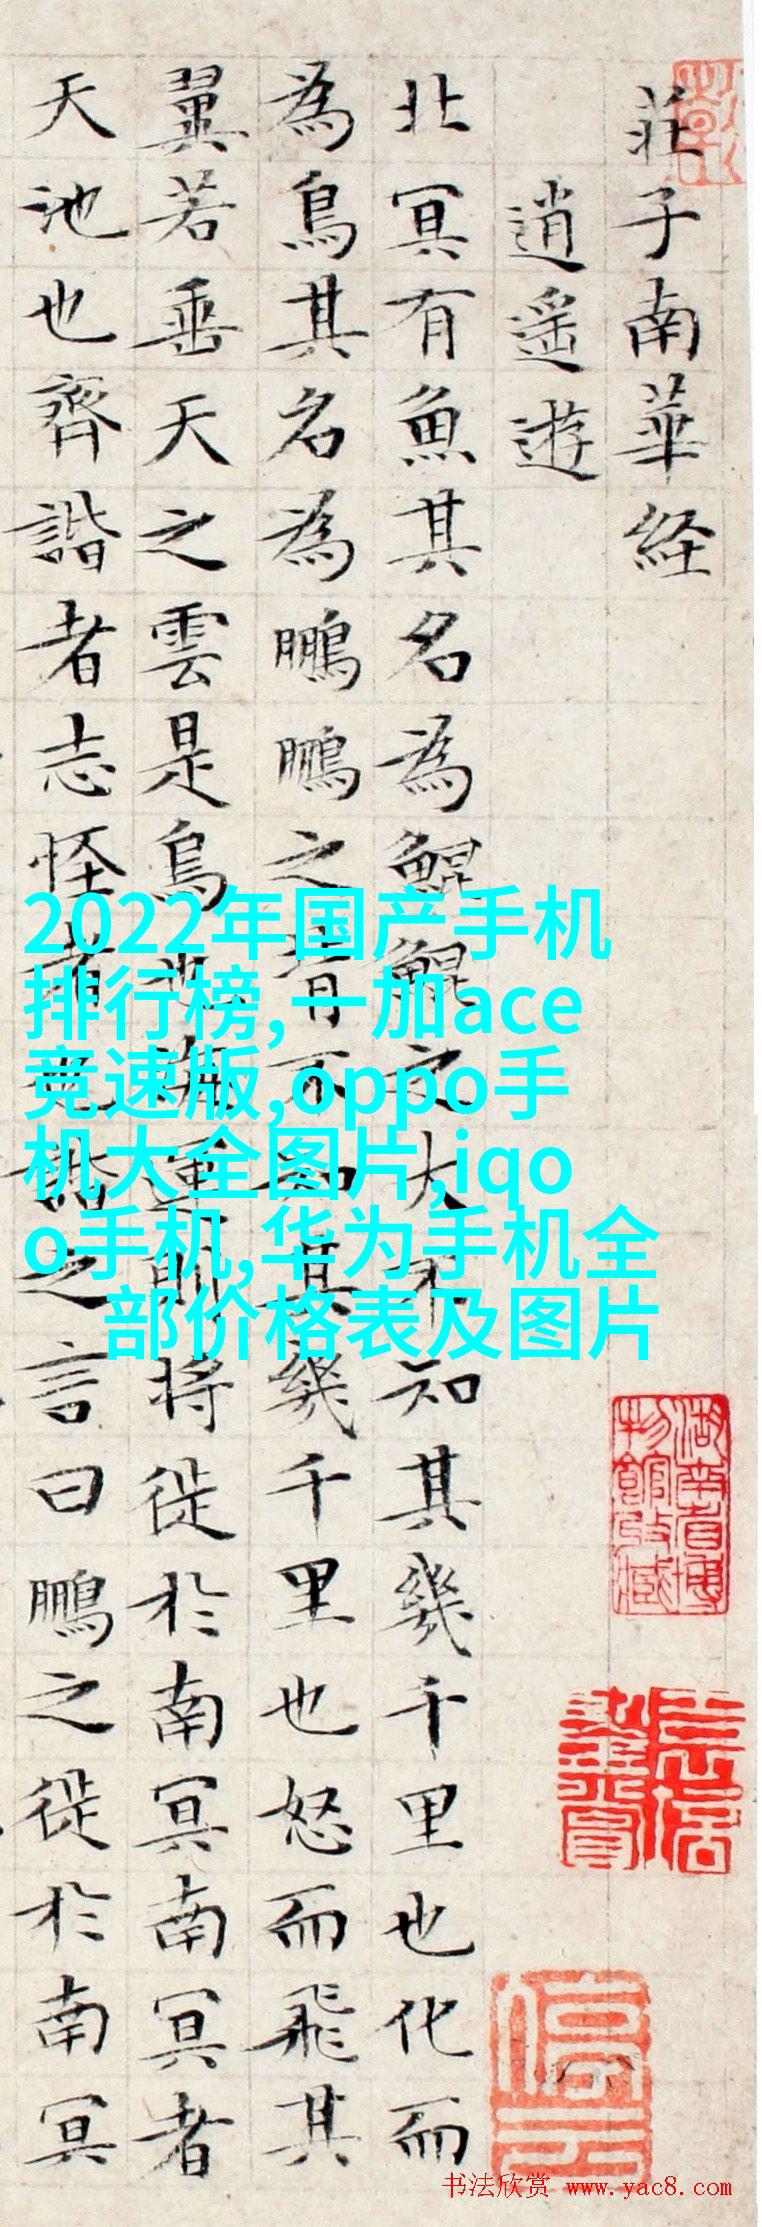 莊子南華経
逍遙遊
北冥有魚其名為鯤鯤之大不知其幾千里也化而
為鳥其名為鵬鵬之背不知其幾千里也怒而飛其
翼若垂天之雲是鳥也海運則將徙於南冥南冥者
天池也齊諧者志怪者也諧之言曰鵬之徙於南冥
2022年国产手机
排行榜,一加ace
竞速版,oppo手
机大全图片,iqo
o手机,华为手机全
部价格表及图片
湖南省博
物館收藏
停云
书法欣赏 www.yac8.com